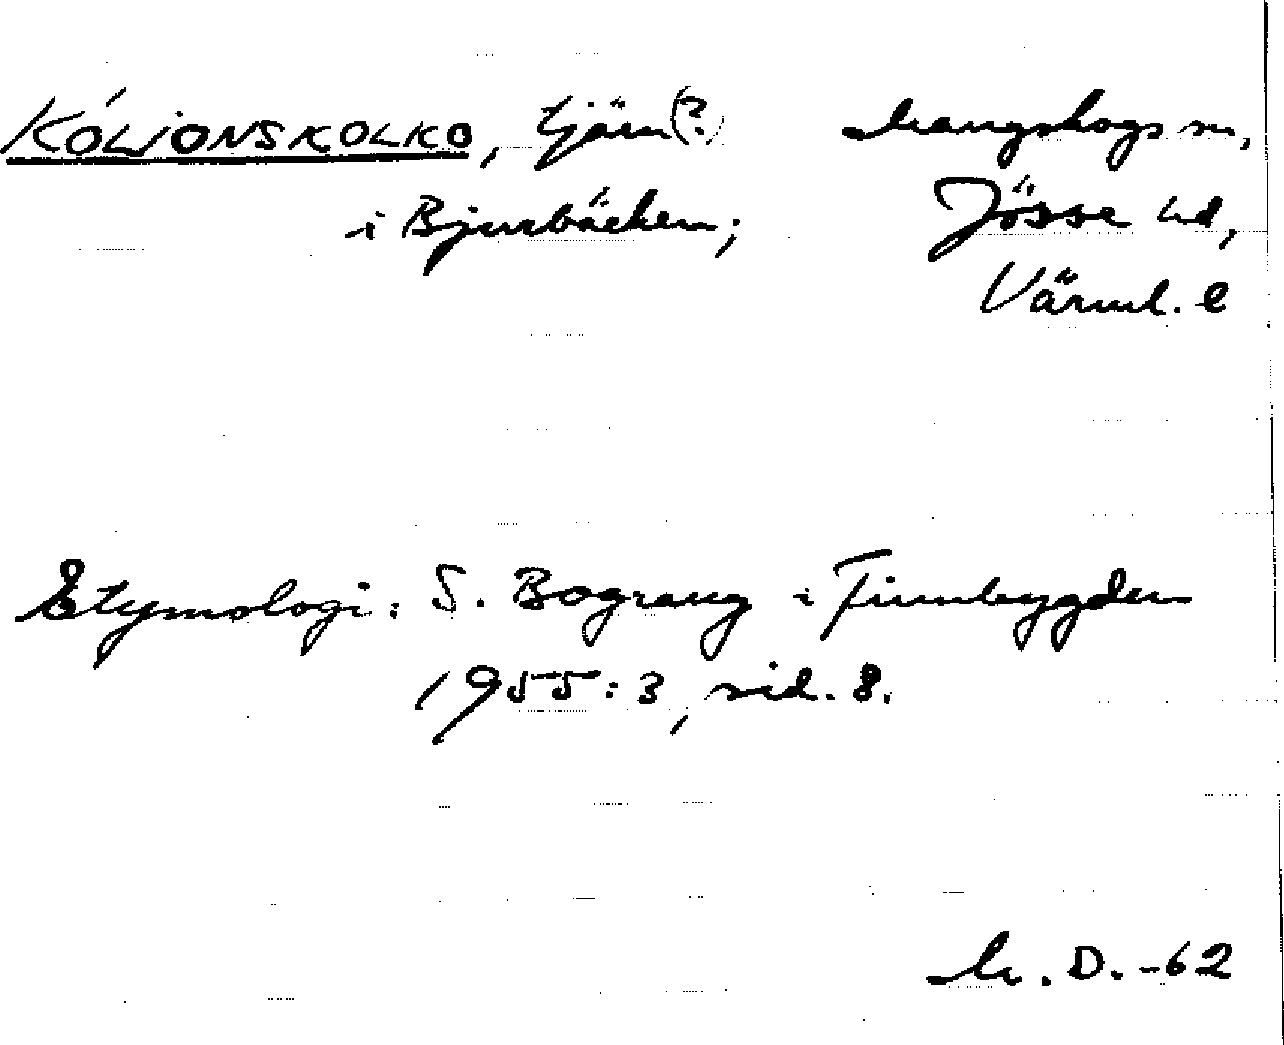 KÓLJONSKOLKO, tjärn(?) Mangskogs sn,
i Bjurbäcken; Jösse hd,
Värml. l
Etymologi: S. Bograng i Finnbygden
1955:3, sid. 8.
M. D. -62